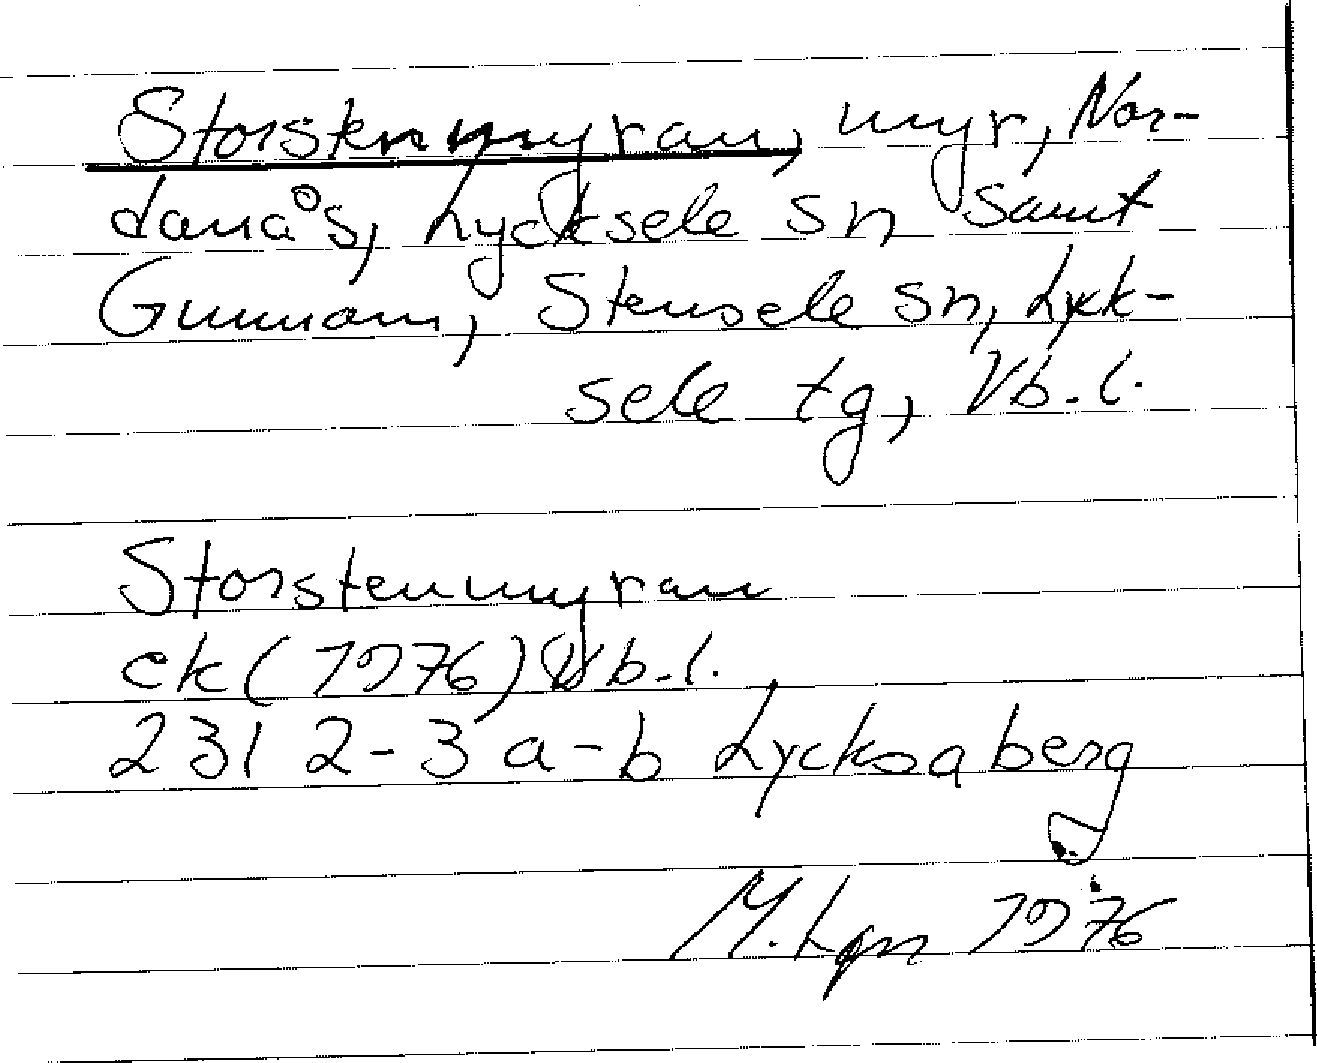 Storstenmyran, myr, Nor-
danås, Lycksele sn samt
Gunnarn, Stensele sn, Lyck-
sele tg, Vb. l.
Storstenmyran
ek (1976) Vb. l.
231 2-3 a-b Lycksaberg
M. Lgn 1976